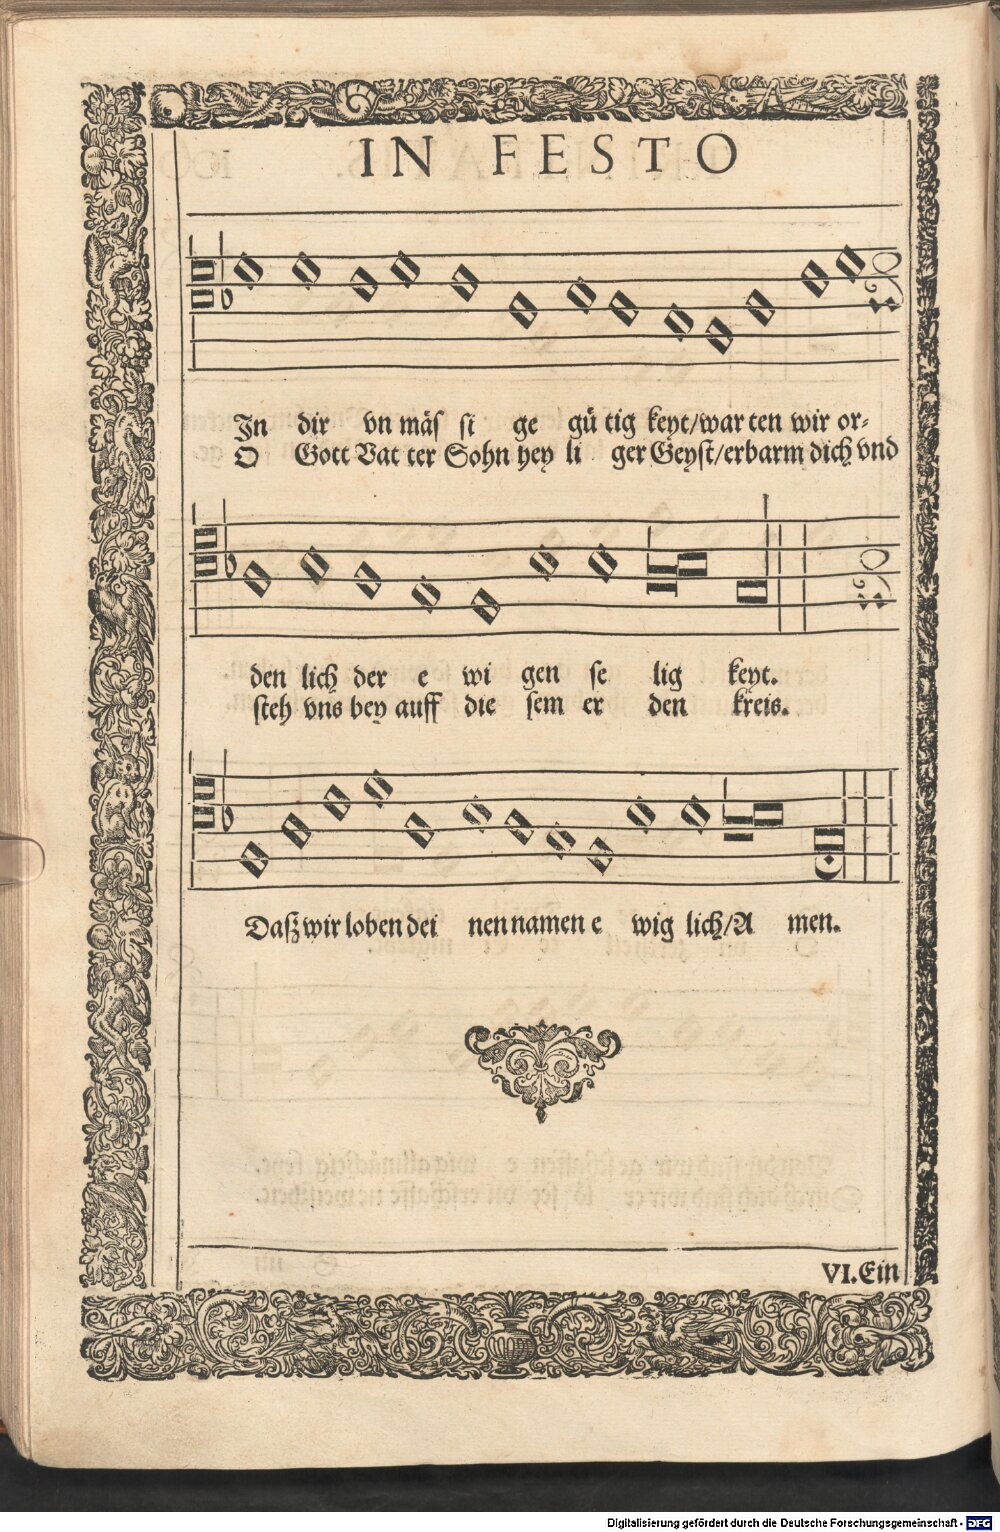 IN FESTO
In dir vn mäs si ge gü tig keyt/war ten wir or-
O Gott Vat ter Sohn hey li ger Geyst/erbarm dich vnd
den lich der e wi gen se lig keyt.
steh vns bey auff die sem er den kreis.
Daß wir loben dei nen namen e wig lich/A men.
VI. Ein
Digitalisierung gefördert durch die Deutsche Forschungsgemeinschaft - DFG